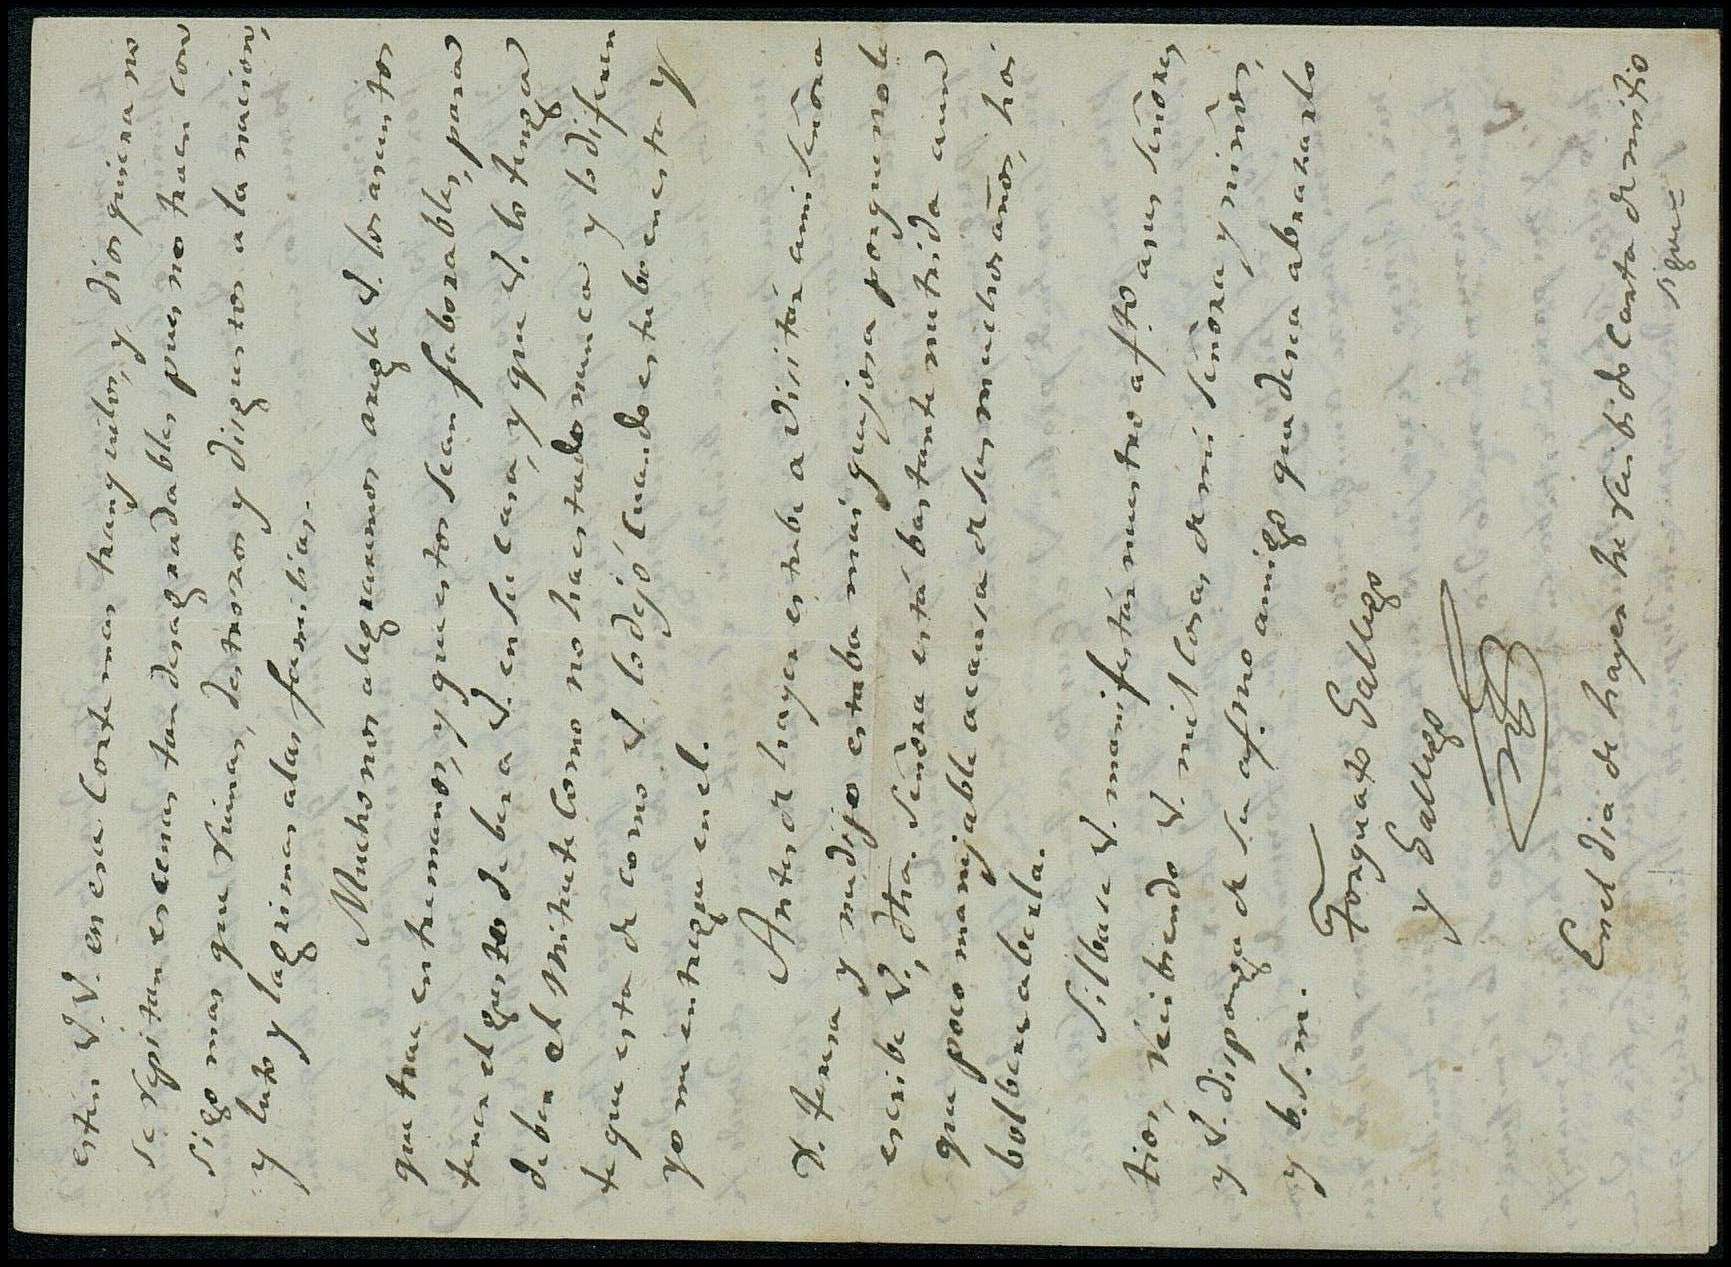 esten V.V. en esa Corte mas tranquilos, y dios quiera no
se repitan escenas tan desagradables pues no traen con
sigo mas que ruinas, destrozos y disgustos a la nacion,
y luto y lagrimas a las familias.
Mucho nos alegraremos aregle V. los asuntos
que trae entre manos, y que estos sean faborables, para
tener el gusto de ber a V. en su casa, y que V. lo tenga
de ber el Mitrute como no ha estado nunca y lo diferen
te que esta de como V. lo dejó cuando estubo en esta y
yo me entregue en el.
Antes de hayer estube a visitár a mi señora
D. Teresa y me dijo estaba mui quejosa porque no le
escribe V., dha. señora está bastante metida aun
que poco manejable a causa de sus muchos años, hoi
bolbere a berla.
Sirbase V. manifestár nuestro afto a sus señores
tios, recibiendo V. mil cosas de mi señora y niños,
y V. disponga de su afmo amigo que desea abrazarlo
y b. s. m.
Torquato Gallego
y Gallego
En el dia de hayer he recibido Carta de mi tio
sigue=